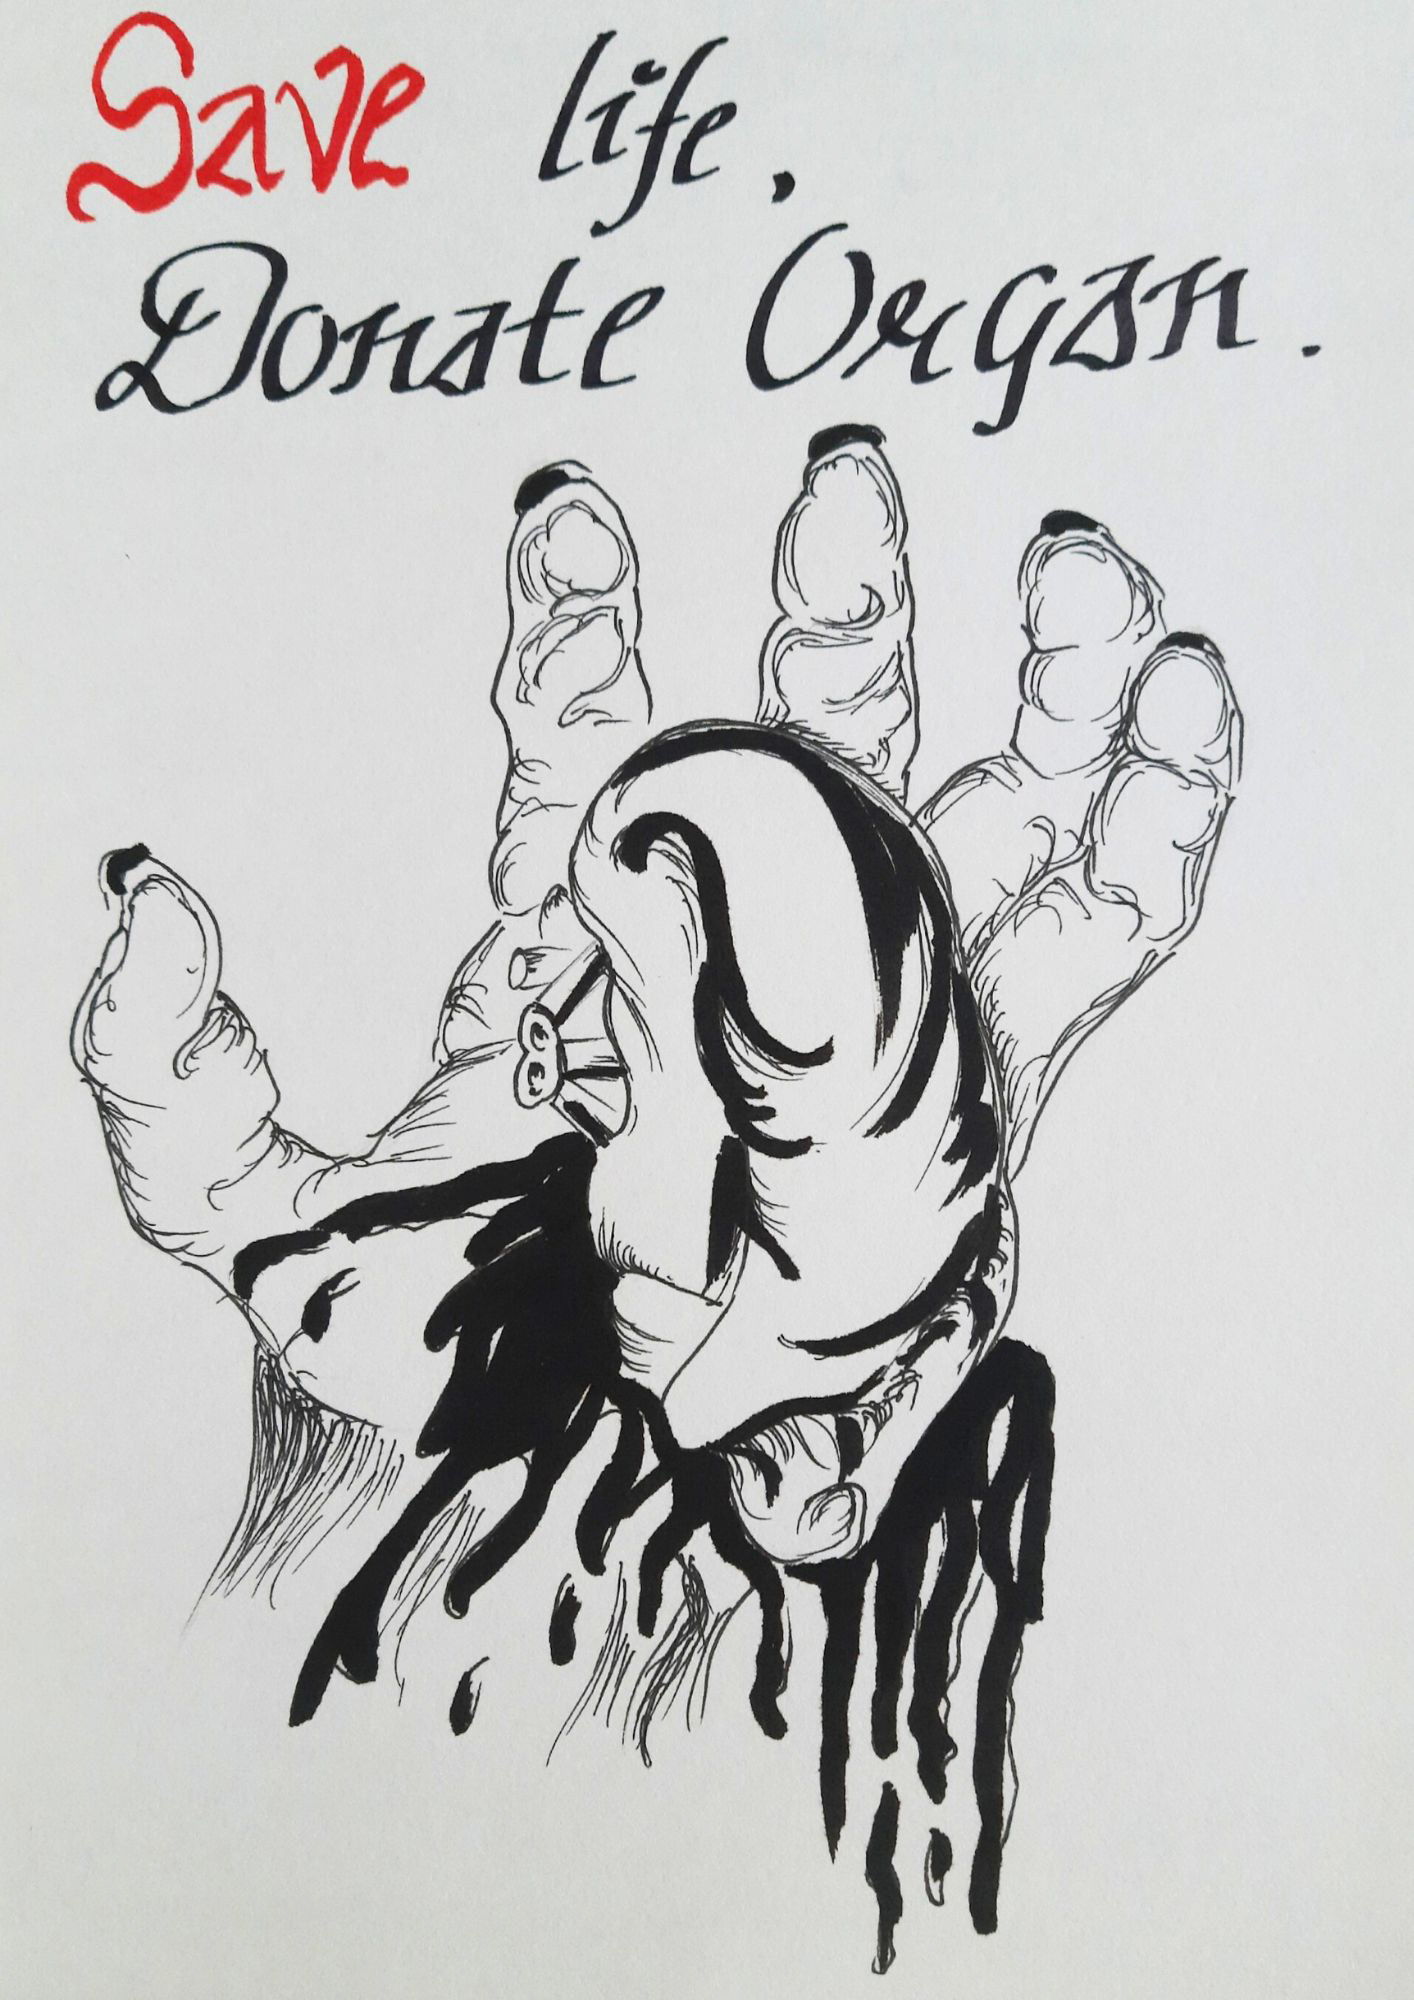 Save life.
Donate Organ.